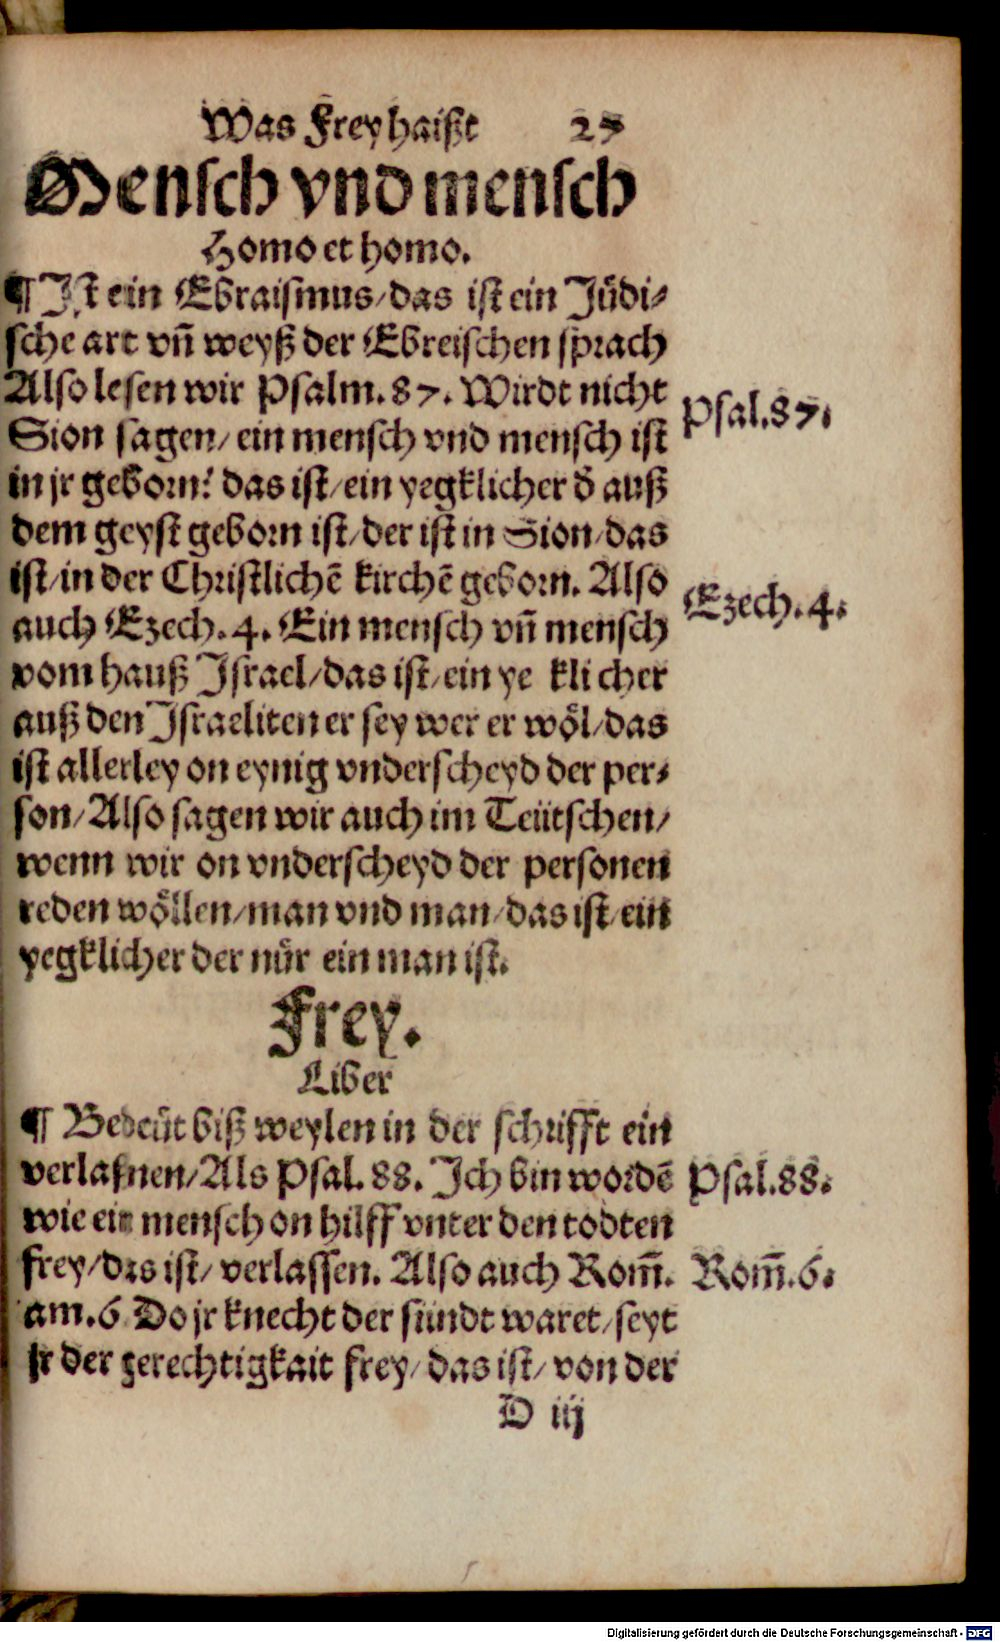 Was Frey haißt 27
Mensch vnd mensch
Homo et homo.
¶ Ist ein Ebraismus/das ist ein Jüdi⸗
sche art vñ weyß der Ebreischen sprach
Also lesen wir Psalm.87. Wirdt nicht
Psal.87.
Sion sagen/ein mensch vnd mensch ist
in jr geborn? das ist/ein yegklicher d̄ auß
dem geyst geborn ist/der ist in Sion/das
ist/in der Christlichē kirchē geborn. Also
Ezech.4.
auch Ezech.4. Ein mensch vñ mensch
vom hauß Israel/das ist/ein ye klicher
auß den Israeliten er sey wer er wöl/das
ist allerley on eynig vnderscheyd der per⸗
son/Also sagen wir auch im Teütschen/
wenn wir on vnderscheyd der personen
reden wöllen/man vnd man/das ist/ein
yegklicher der nür ein man ist.
Frey.
Liber
¶ Bedeüt biß weylen in der schrifft ein
verlaßnen/Als Psal.88. Ich bin wordē
Psal.88.
wie ein mensch on hilff vnter den todten
frey/das ist/verlassen. Also auch Rom̄.
Rom̄.6.
am.6 Do jr knecht der sündt waret/seyt
jr der gerechtigkait frey/das ist/von der
D iij
Digitalisierung gefördert durch die Deutsche Forschungsgemeinschaft - DFG